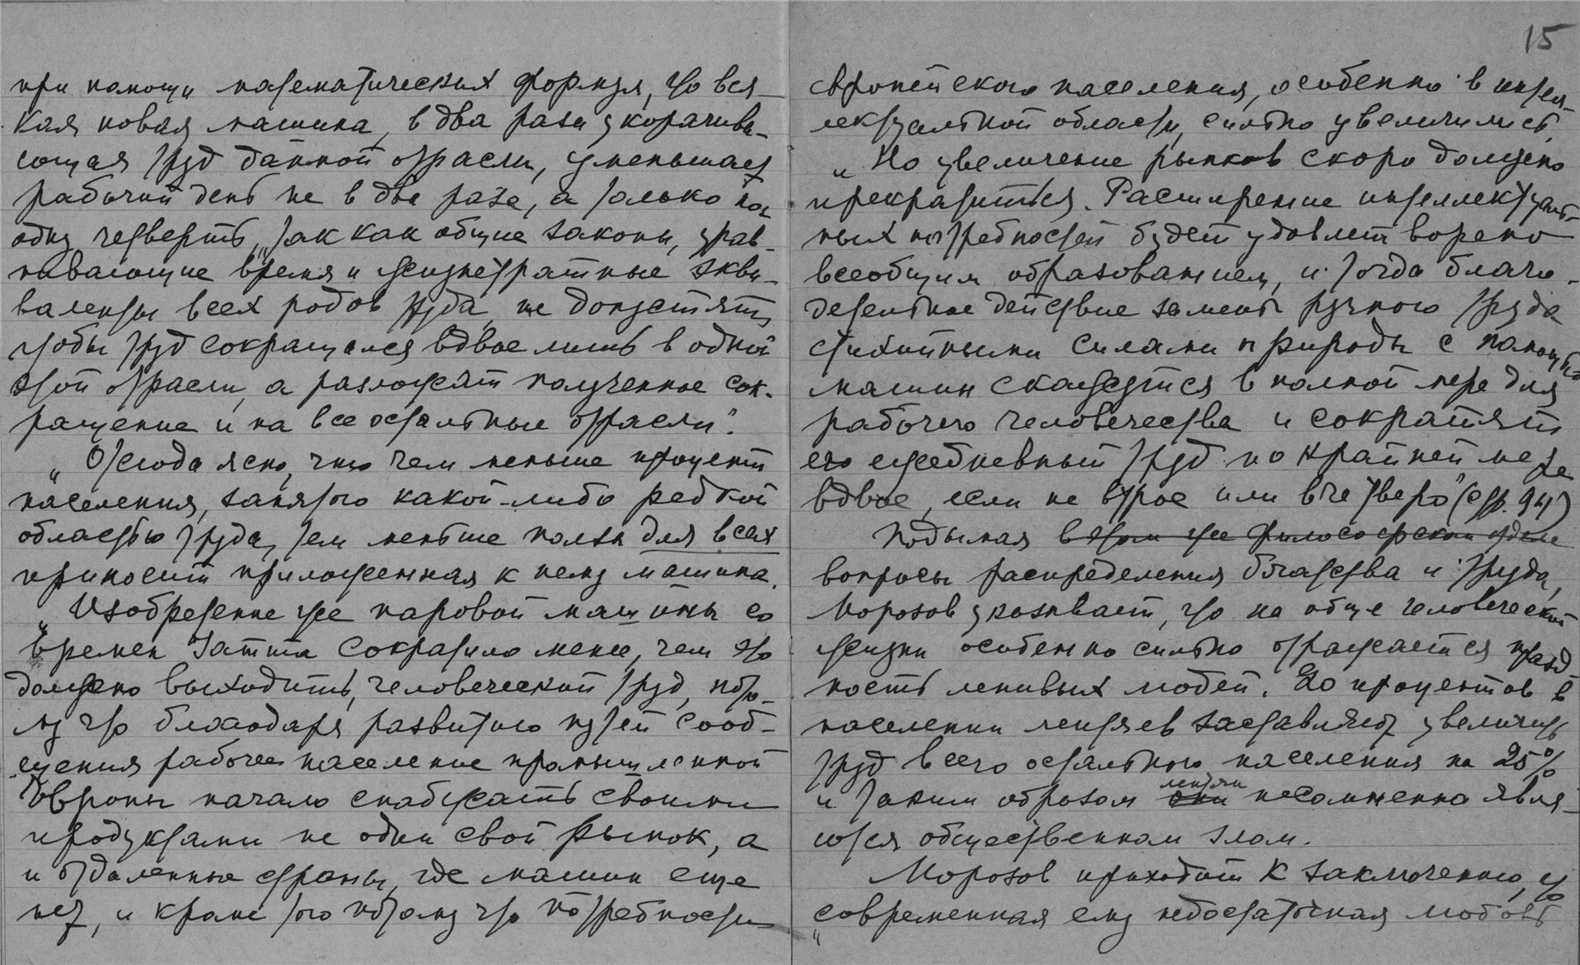 при помощи математических формул, что вся-
кая новая машина, в два раза укорачива-
ющая труд данной отрасли, уменьшает
рабочий день не в два раза, а только на
одну четверть, так как общие законы, урав-
нивающие время и жизнетратные экви-
валенты всех родов труда, не допустят,
чтобы труд сокращался вдвое лишь в одной
этой отрасли, а разложат полученное сок-
ращение и на все остальные отрасли".
„Отсюда ясно, что чем меньше процент
населения, занятого какой-либо редкой
областью труда, тем меньше пользы для всех
приносит приложенная к нему машина.
„Изобретение же паровой машины со
времен Уатта сократило менее, чем это
должно выходить, человеческий труд, пото-
му что благодаря развитию путей сооб-
щения рабочее население промышленной
Европы начало снабжать своими
продуктами не один свой рынок, а
и отдаленные страны, где машин еще
нет, и кроме того потому что потребности
15
европейского населения, особенно в интел-
лектуальной области, сильно увеличились.
„Но увеличение рынков скоро должно
прекратиться. Расширение интеллектуаль-
ных потребностей будет удовлетворено
всеобщим образованием, и тогда благо-
детельное действие замены ручного труда
стихийными силами природы с помощью
машин скажется в полной мере для
рабочего человечества и сократят
его ежедневный труд по крайней мере
вдвое, если не втрое или вчетверо" (стр. 94)
Подымая в этом же философском
вопросы распределения богатства и труда,
Морозов указывает, что на общечеловеческой
жизни особенно сильно отражается празд-
ность ленивых людей. 20 процентов в
населении лентяев заставляют увеличить
труд всего остального населения на 25%
и таким образом они лентяи несомненно явля-
ются общественном злом.
Морозов приходит к заключению, что
„современная ему недостаточная любовь